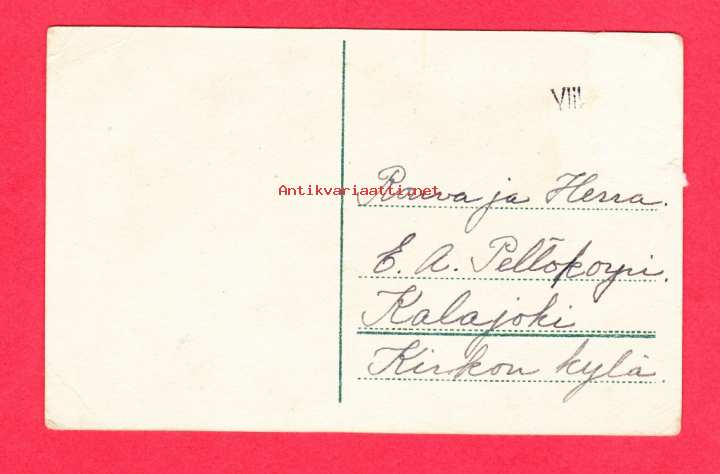 VIII.
Antikvariaatti.net
Rouva ja Herra.
E. A. Peltokorpi.
Kalajoki
Kirkon kylä.